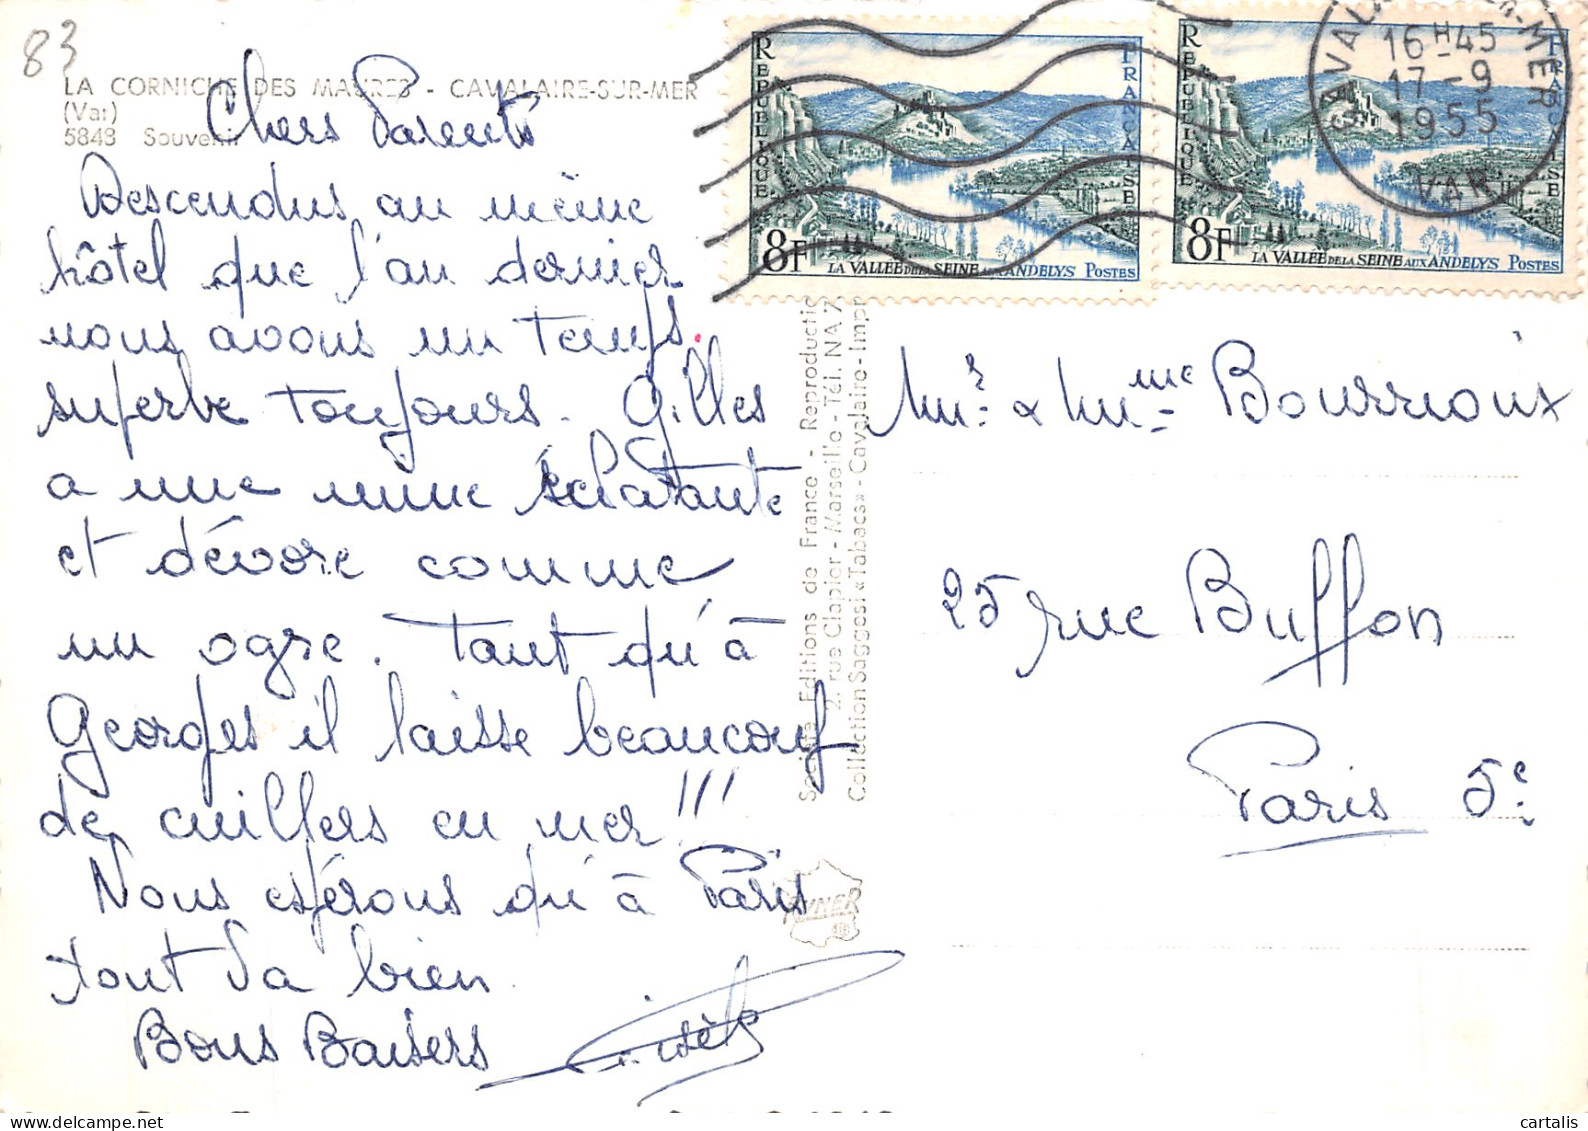 83
LA CORNICHE DES MAURES - CAVALAIRE-SUR-MER
(Var)
5848 Souvenir
Chers Parents
Descendus au même
hôtel que l'an dernier
nous avons un temps
superbe toujours. Gilles
a une mine éclatante
et dévore comme
un ogre. Tant qu'à
Georges il laisse beaucoup
de cuillers en mer!!!
Nous espérons qu'à Paris
tout va bien
Bons Baisers
Société Editions de France - Reproductio
2, rue Clapier - Marseille - Tél. NA 7
Collection Saggesi «Tabacs» - Cavalaire - Impr
RÉPUBLIQUE FRANÇAISE
8F
LA VALLÉE DE LA SEINE AUX ANDELYS POSTES
RÉPUBLIQUE FRANÇAISE
8F
LA VALLÉE DE LA SEINE AUX ANDELYS POSTES
16H45
17-9
1955
VAR
Mr. & Mme Bourrioux
25 rue Buffon
Paris 5e.
cartalis